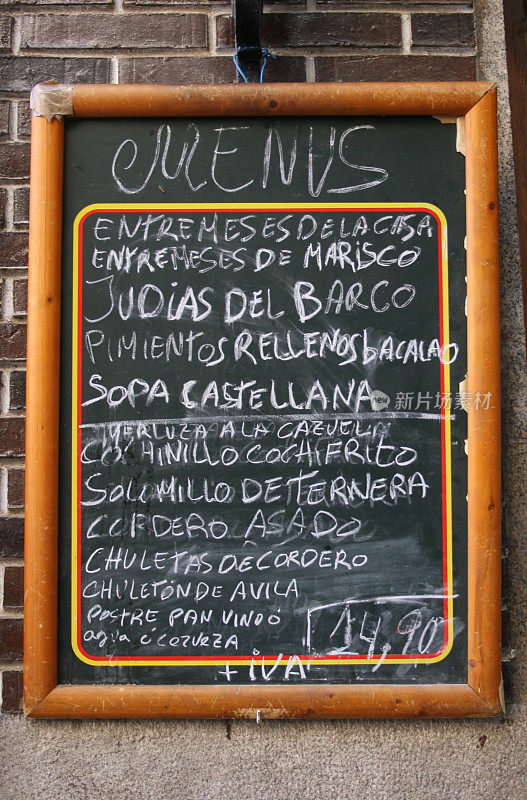 MENUS
ENTREMESES DE LA CASA
ENTREMESES DE MARISCO
JUDIAS DEL BARCO
PIMIENTOS RELLENOS bACALAO
SOPA CASTELLANA
new 新片场素材
MERLUZA A LA CAZUELA
COCHINILLO COCHIFRITO
SOLOMILLO DE TERNERA
CORDERO ASADO
CHULETAS DE CORDERO
CHULETÓN DE AVILA
POSTRE PAN VINO Ó
agua ó CERVEZA
14,90
+ IVA